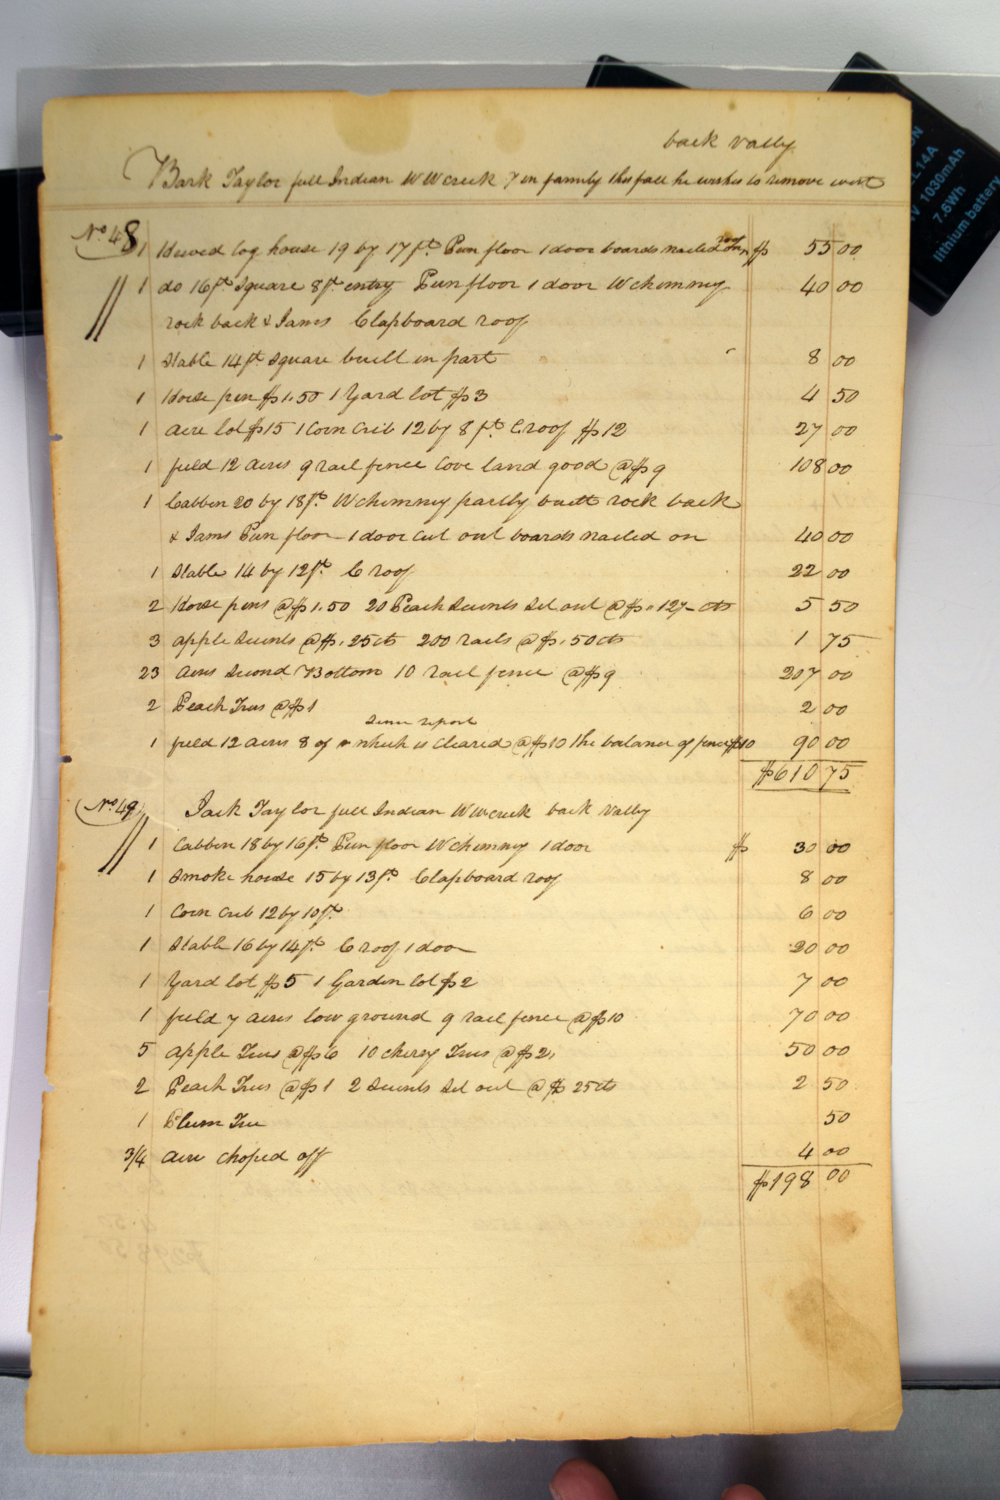 back vally
Bark Taylor full Indian W W creek 7 in family this fall he wishes to remove west
No 48
1 Hewed log house 19 by 17 ft Pun floor 1 door boards nailed on $ 55 00
1 do 16 ft square 8 ft entry Pun floor 1 door W chimney 40 00
rock back & Jams Clapboard roof
1 Stable 14 ft square built in part 8 00
1 Horse pen $1.50 1 Yard lot $3 4 50
1 acre lot $15 1 Corn Crib 12 by 8 ft C. roof $12 27 00
1 field 12 acres 9 rail fence Cove land good @ $9 108 00
1 Cabben 20 by 18 ft W chimney partly built rock back
& Jams Pun floor 1 door Cut out boards nailed on 40 00
1 Stable 14 by 12 ft C roof 22 00
2 Horse pens @ $1.50 20 Peach Scients Set out @ $ . 12 1/2 cts 5 50
3 apple Scients @ $ . 25 cts 200 rails @ $ . 50 cts 1 75
23 acres Second Bottom 10 rail fence @ $9 207 00
2 Peach Trees @ $1 2 00
report
1 field 12 acres 8 of which is Cleared @ $10 the balance of fence $10 90 00
$610 75
No 49
Jack Taylor full Indian W W creek back vally
1 Cabben 18 by 16 ft Pun floor W chimney 1 door $ 30 00
1 Smoke house 15 by 13 ft Clapboard roof 8 00
1 Corn Crib 12 by 10 ft 6 00
1 Stable 16 by 14 ft C roof 1 door 20 00
1 Yard lot $5 1 Garden lot $2 7 00
1 field 7 acres low ground 9 rail fence @ $10 70 00
5 apple Trees @ $6 10 cherry Trees @ $2 50 00
2 Peach Trees @ $1 2 Scients Set out @ $ 25 cts 2 50
1 Plum Tree 50
3/4 acre choped off 4 00
$198 00
L14A
V 1030mAh
7.6Wh
lithium battery